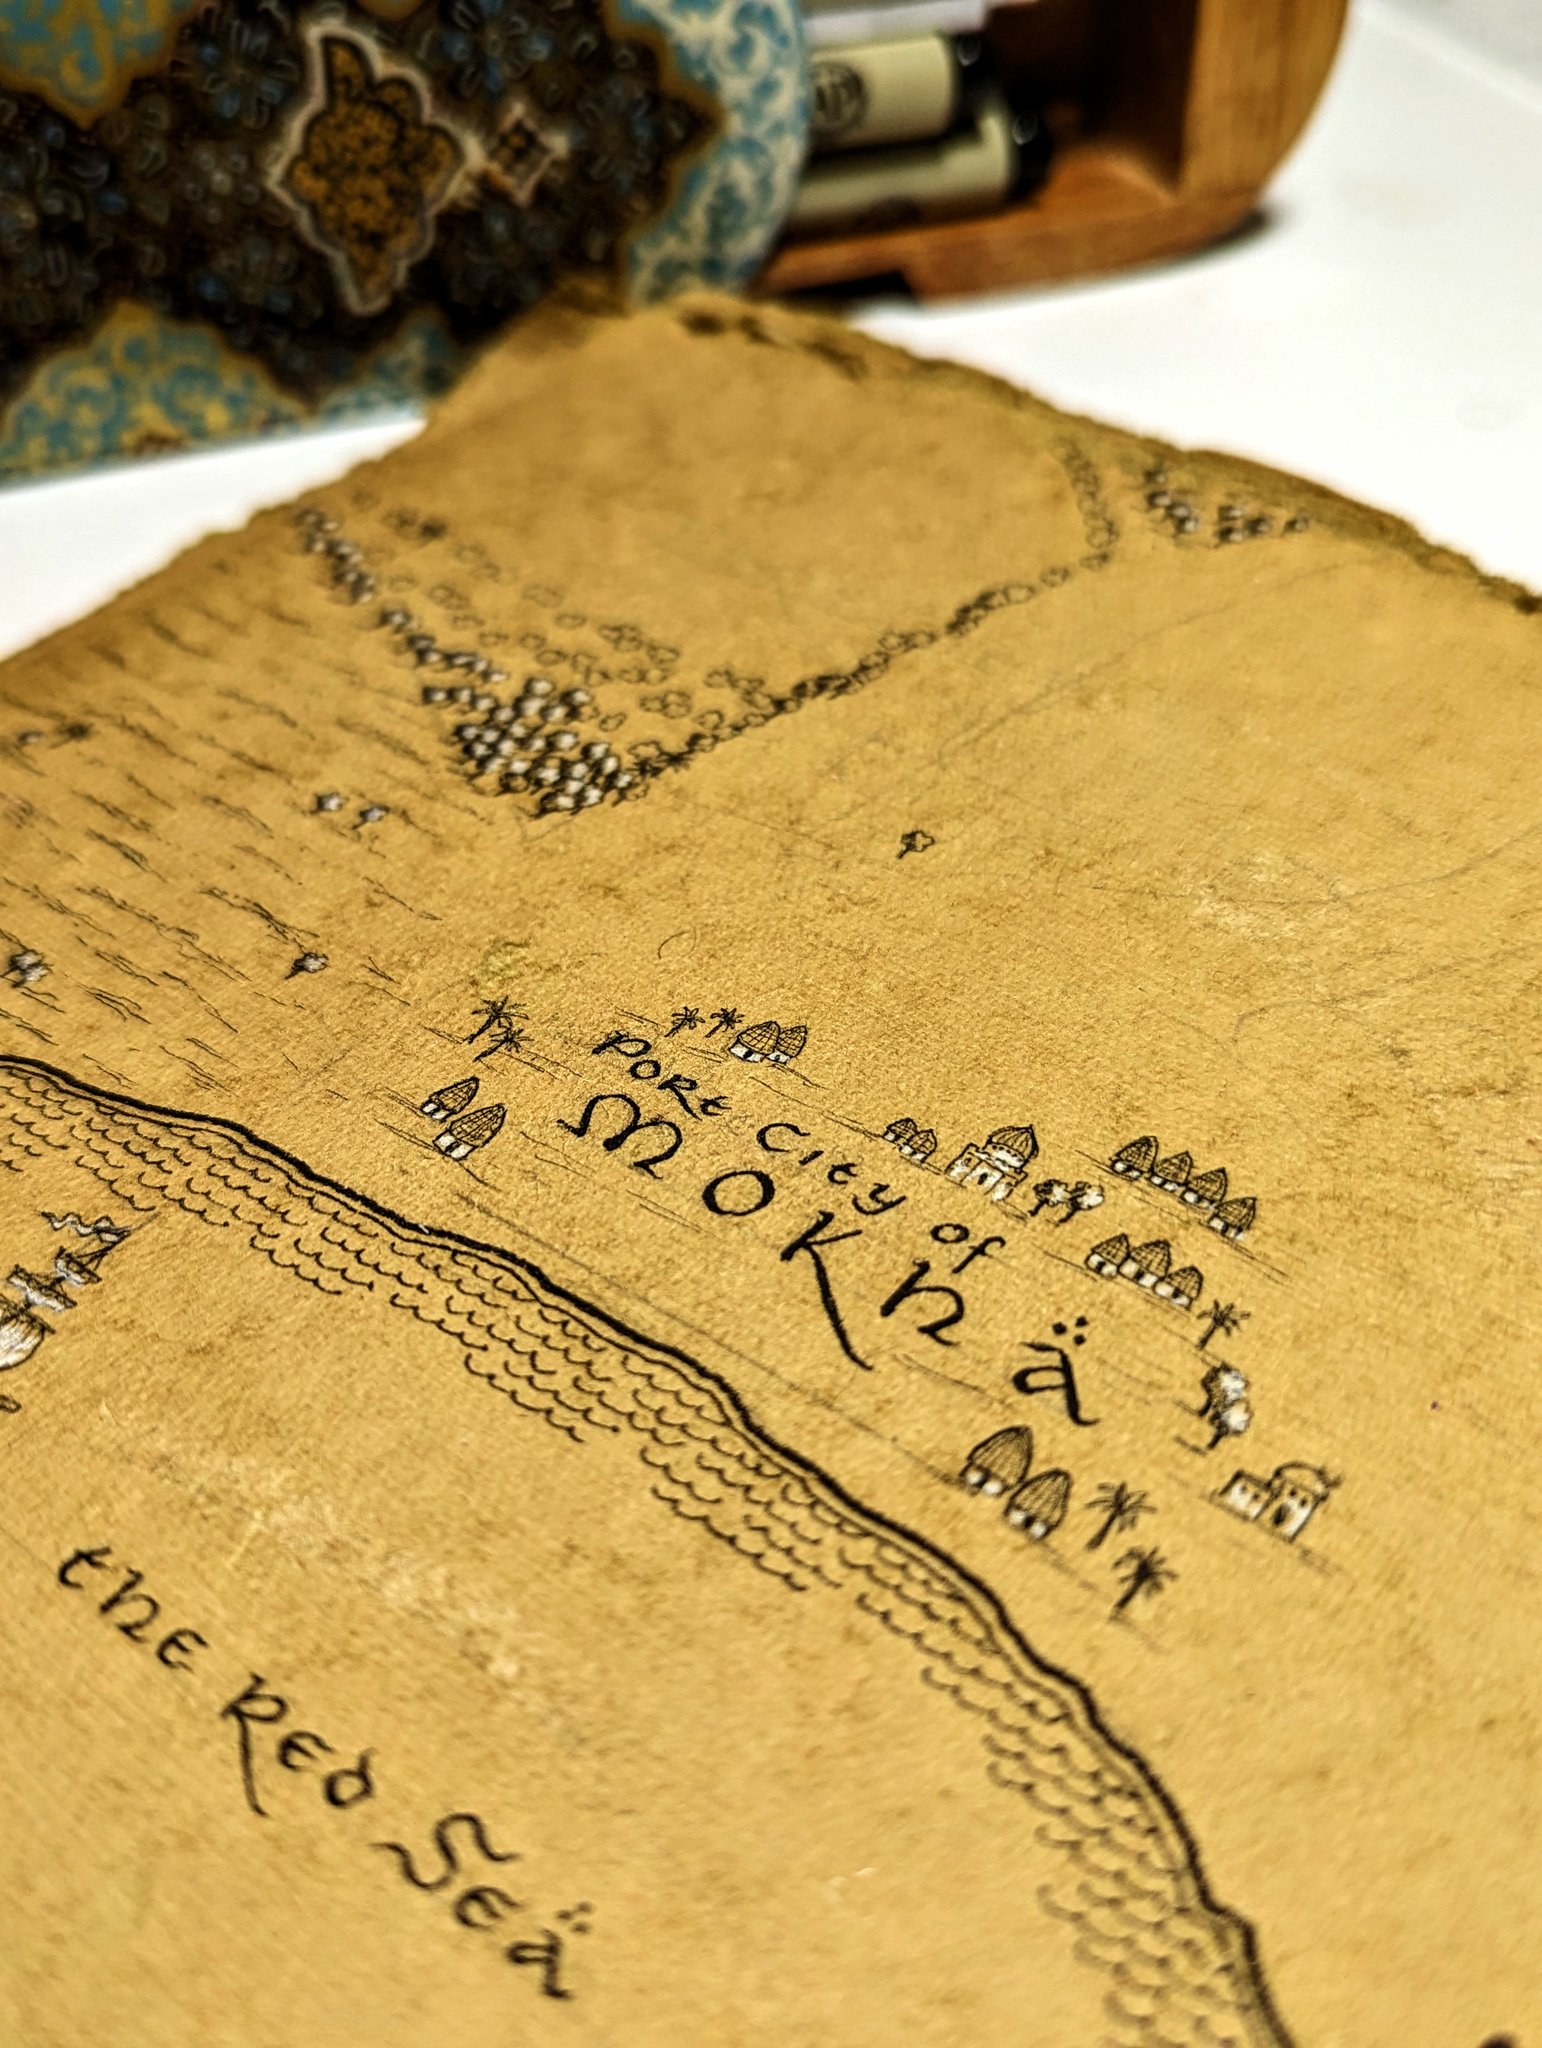 Port City of
Mokhä
the Red Seä